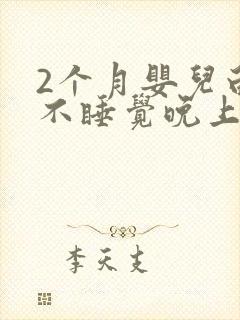 2个月嬰兒
不睡覺晚上
李天支